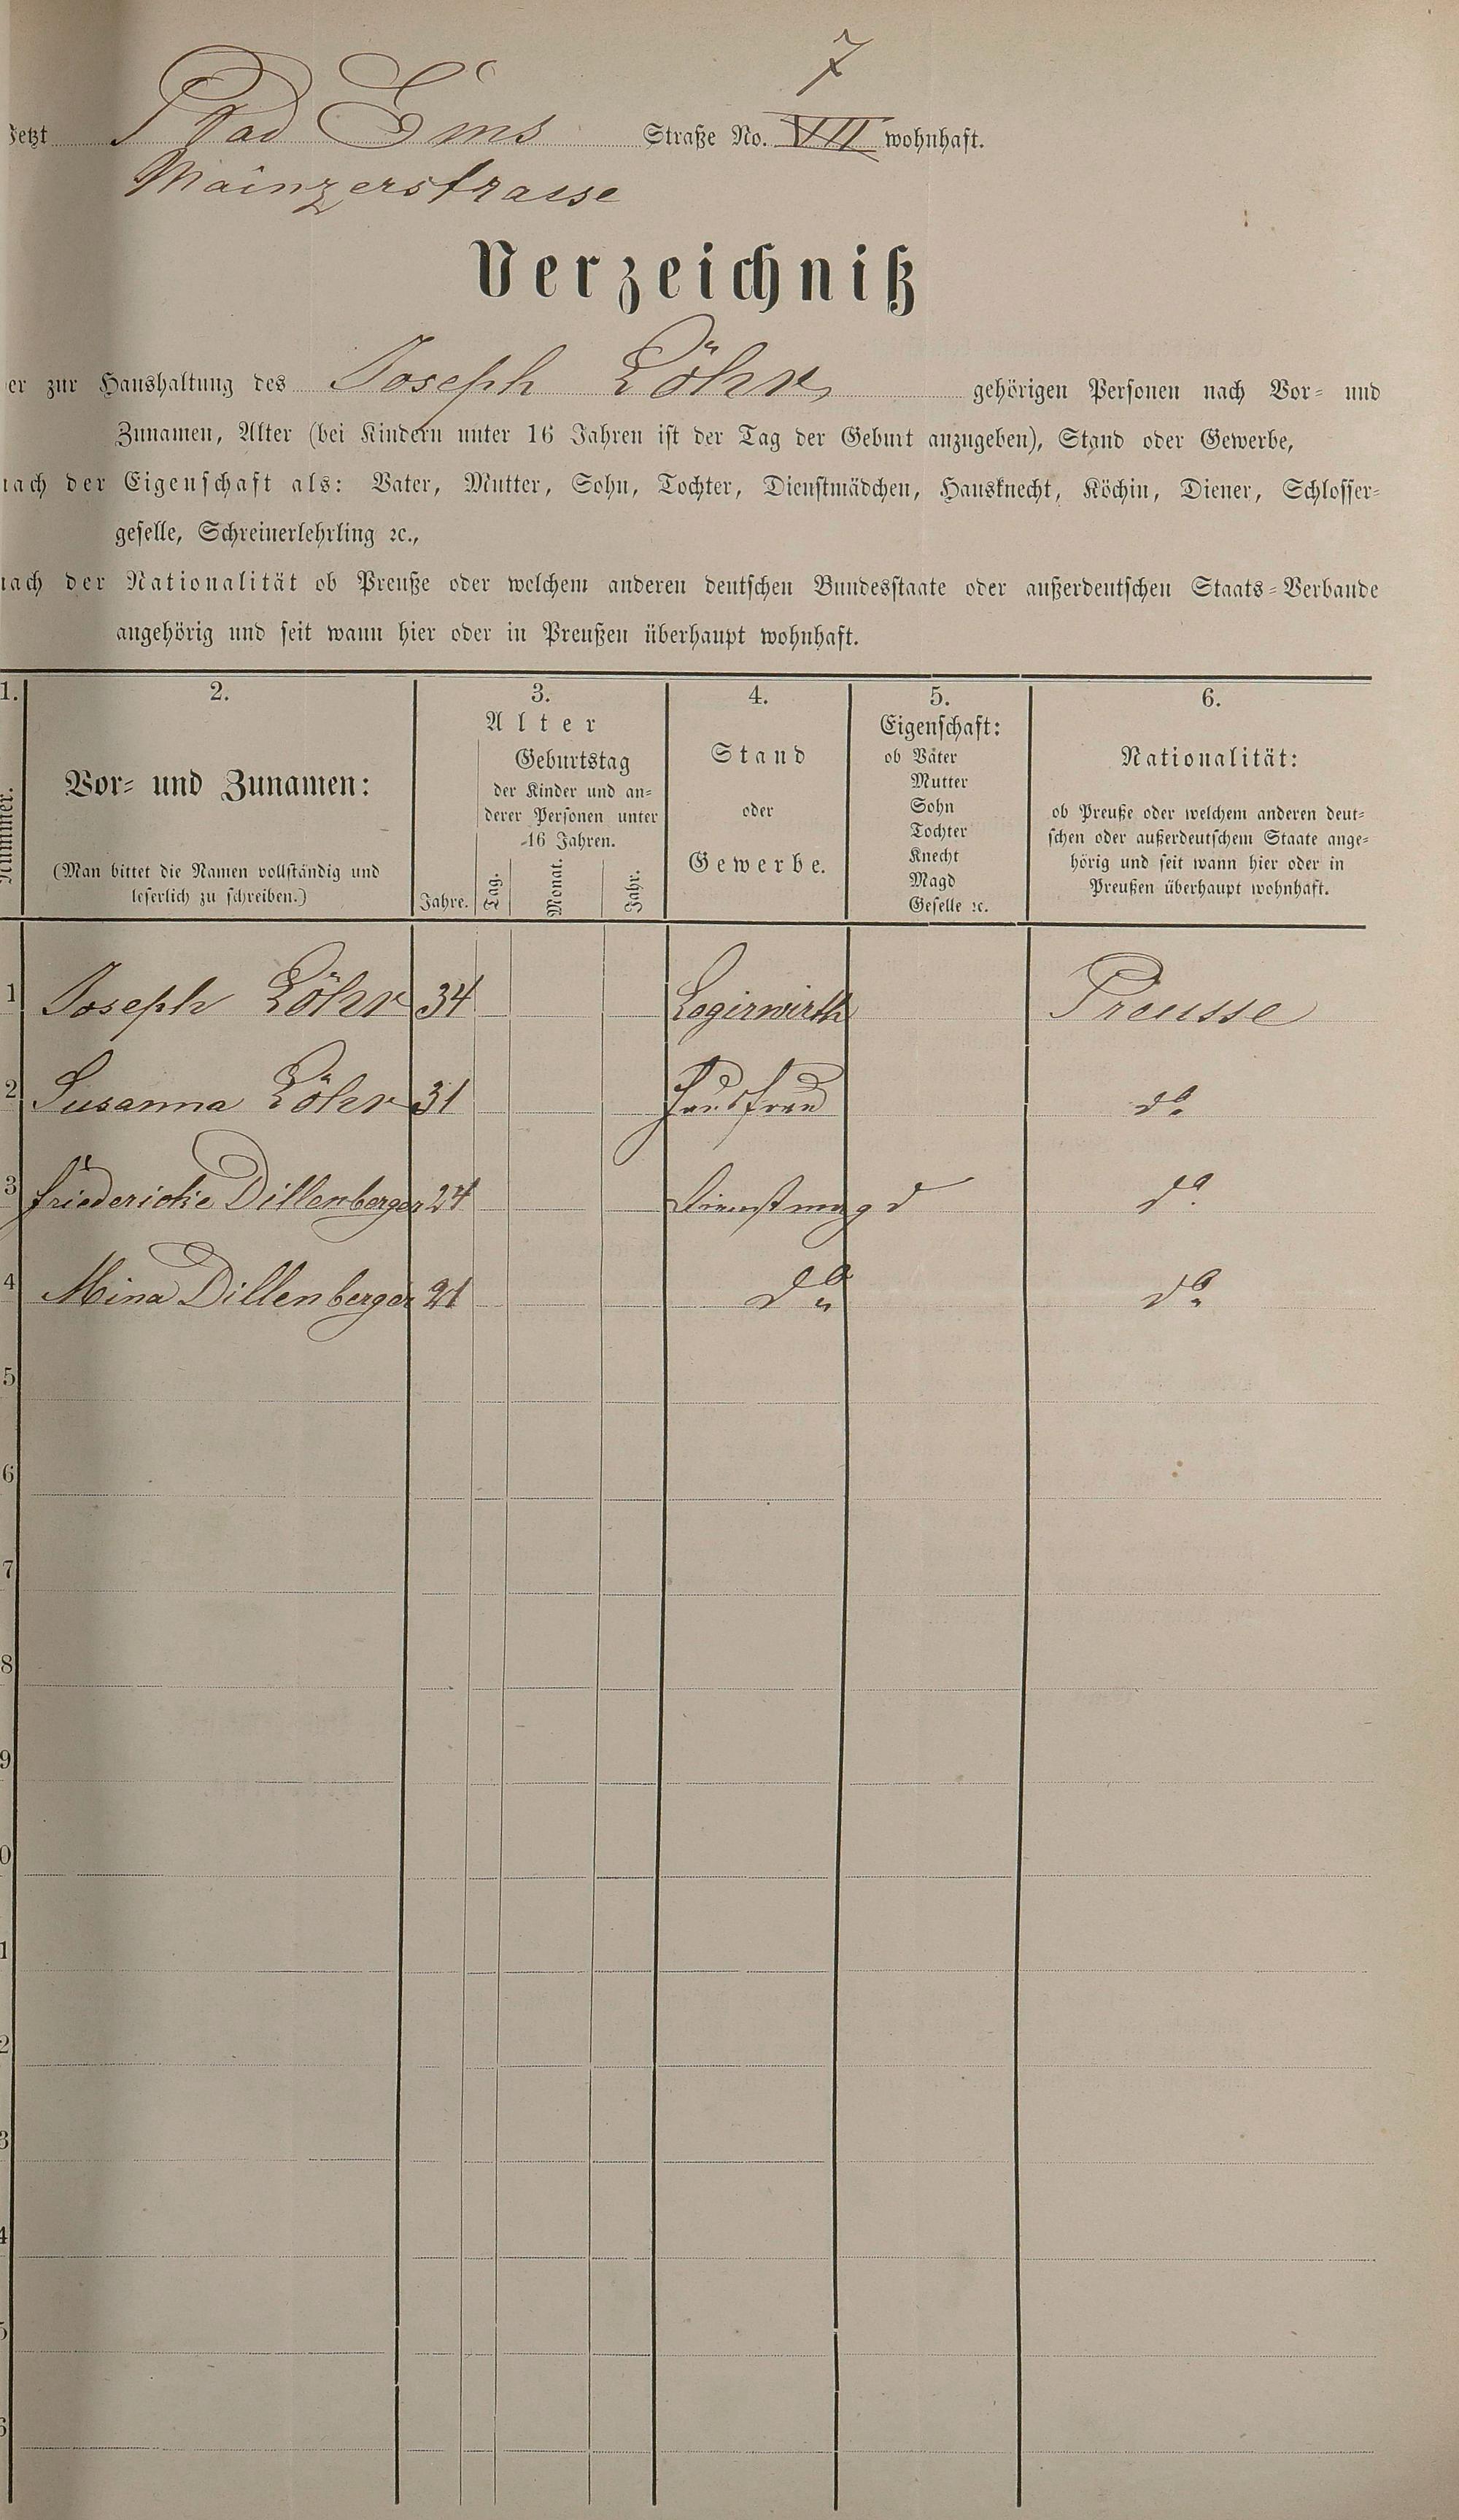 7
Jetzt Bad Ems Straße No. VII wohnhaft.
Mainzerstrasse
Verzeichniß
er zur Haushaltung des Joseph Löhr, gehörigen Personen nach Vor- und
Zunamen, Alter (bei Kindern unter 16 Jahren ist der Tag der Geburt anzugeben), Stand oder Gewerbe,
nach der Eigenschaft als: Vater, Mutter, Sohn, Tochter, Dienstmädchen, Hausknecht, Köchin, Diener, Schlosser-
geselle, Schreinerlehrling ꝛc.,
nach der Nationalität ob Preuße oder welchem anderen deutschen Bundesstaate oder außerdeutschen Staats-Verbande
angehörig und seit wann hier oder in Preußen überhaupt wohnhaft.
1. 2. 3. 4. 5. 6.
Nummer.
Vor- und Zunamen:
(Man bittet die Namen vollständig und
leserlich zu schreiben.)
Alter
Geburtstag
der Kinder und an-
derer Personen unter
16 Jahren.
Jahre. Tag. Monat. Jahr.
Stand
oder
Gewerbe.
Eigenschaft:
ob Vater
Mutter
Sohn
Tochter
Knecht
Magd
Geselle ꝛc.
Nationalität:
ob Preuße oder welchem anderen deut-
schen oder außerdeutschem Staate ange-
hörig und seit wann hier oder in
Preußen überhaupt wohnhaft.
1 Joseph Löhr 34 Logirwirth Preusse
2 Susanna Löhr 31 Hausfrau do.
3 Friedericke Dillenberger 24 Dienstmagd do.
4 Mina Dillenberger 21 do. do.
5
6
7
8
9
0
1
2
3
4
5
6